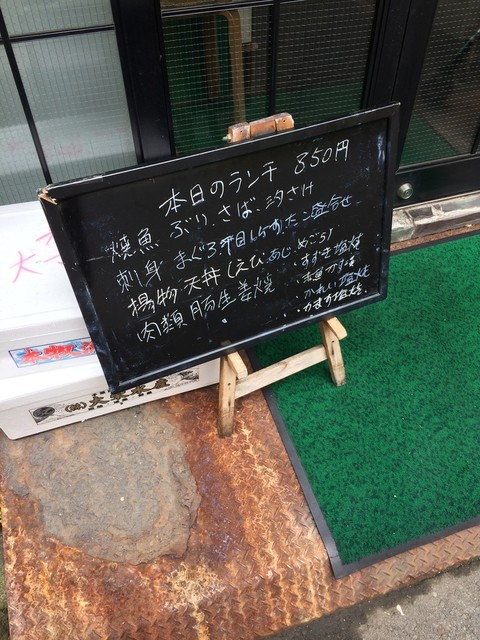 本日のランチ 850円
焼魚 ぶり、さば、さけ
刺身 まぐろ平目しゃけたこ盛合せ
揚物 天丼(えび あじ めごち)
肉類 豚生姜焼
・すずき塩焼
・かれい塩焼
・かます塩焼